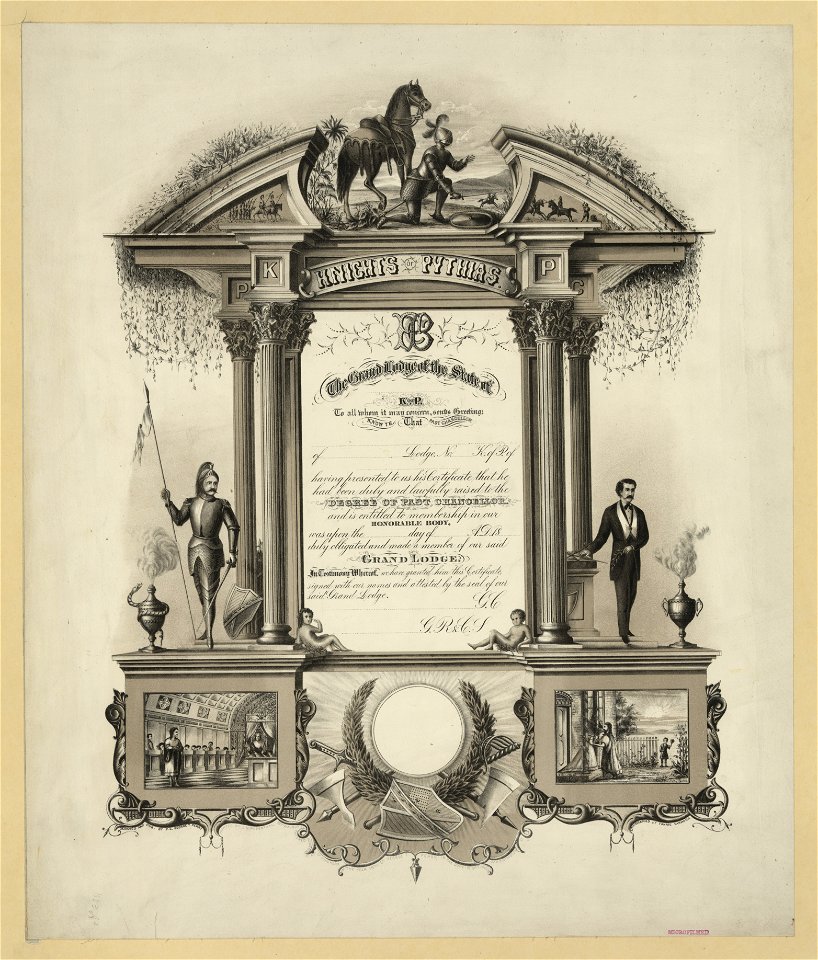 K P
P C
KNIGHTS OF PYTHIAS.
The Grand Lodge of the State of
K of P.
To all whom it may concern, sends Greeting:
KNOW YE That PAST CHANCELLOR
of Lodge, No. K. of P. of
having presented to us his Certificate that he
had been duly and lawfully raised to the
DEGREE OF PAST CHANCELLOR,
and is entitled to membership in our
HONORABLE BODY,
was upon the day of A.D. 18
duly obligated and made a member of our said
GRAND LODGE.
In Testimony Whereof, we have granted him this Certificate,
signed with our names and attested by the seal of our
said Grand Lodge.
G. C
G. R & C. S
MICROFILMED